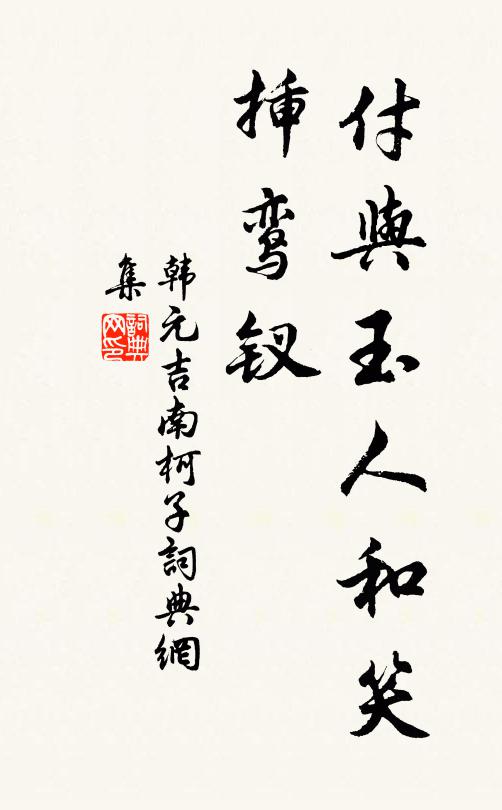 付與玉人和笑
挿鸾钗
韩元吉南柯子詞典網
集
詞典
网印